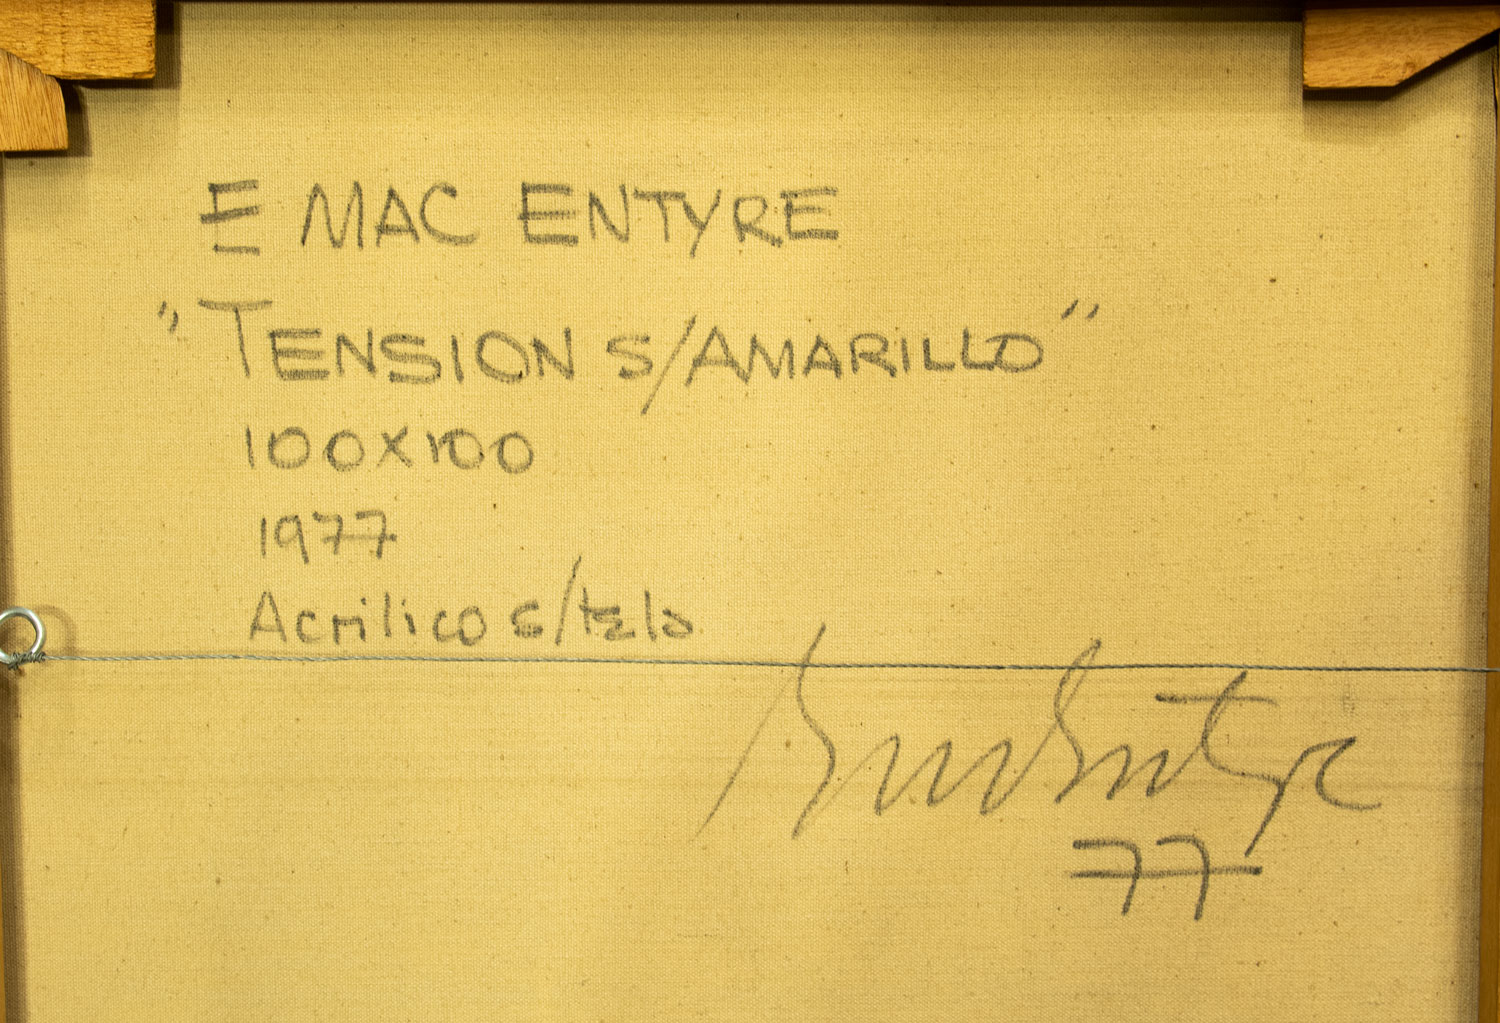 E MAC ENTYRE
"TENSION S/AMARILLO"
100X100
1977
Acrilico s/tela
Mac Entyre
77